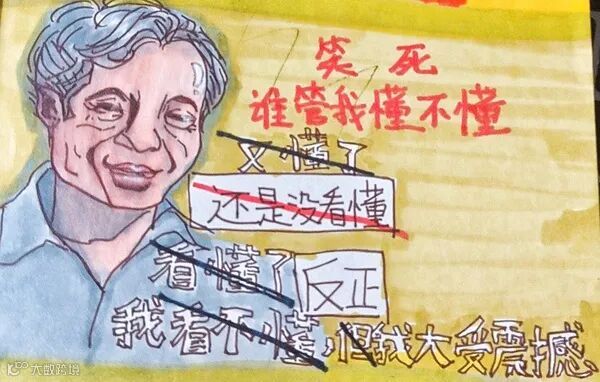 笑死
谁管我懂不懂
又懂了
还是没看懂
看懂了 反正
我看不懂,但我大受震撼
大数跨境